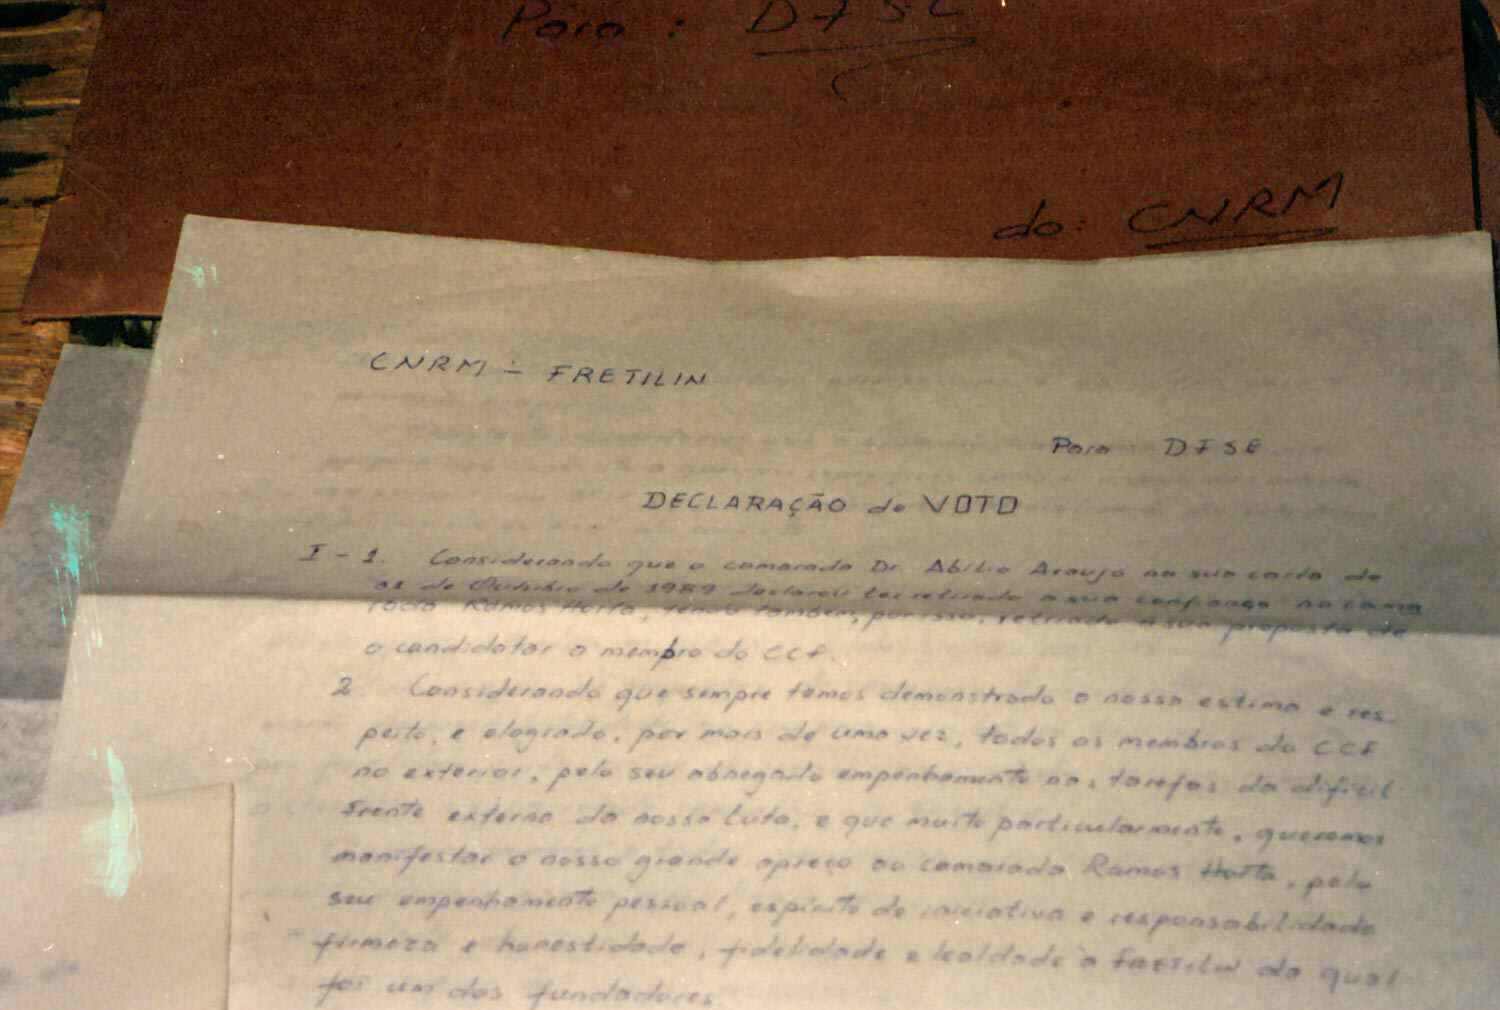 Para: DFSE
do: CNRM
CNRM - FRETILIN
Para DFSE
DECLARAÇÃO de VOTO
I - 1. Considerando que o camarada Dr. Abílio Araujo na sua carta de
de Outubro de 1989 declarou ter retirado a sua confiança no cama
rada Ramos Horta, tendo também, por isso, retirado a sua proposta de
o candidatar a membro do CCF.
2. Considerando que sempre temos demonstrado a nossa estima e res-
peito, e elogiado, por mais de uma vez, todos os membros do CCF
no exterior, pelo seu abnegado empenhamento nas tarefas da difícil
Frente externa da nossa Luta, e que muito particularmente, queremos
manifestar o nosso grande apreço ao camarada Ramos Horta, pelo
seu empenhamento pessoal, espírito de iniciativa e responsabilidade
firmeza e honestidade, fidelidade e lealdade à Fretilin da qual
foi um dos fundadores